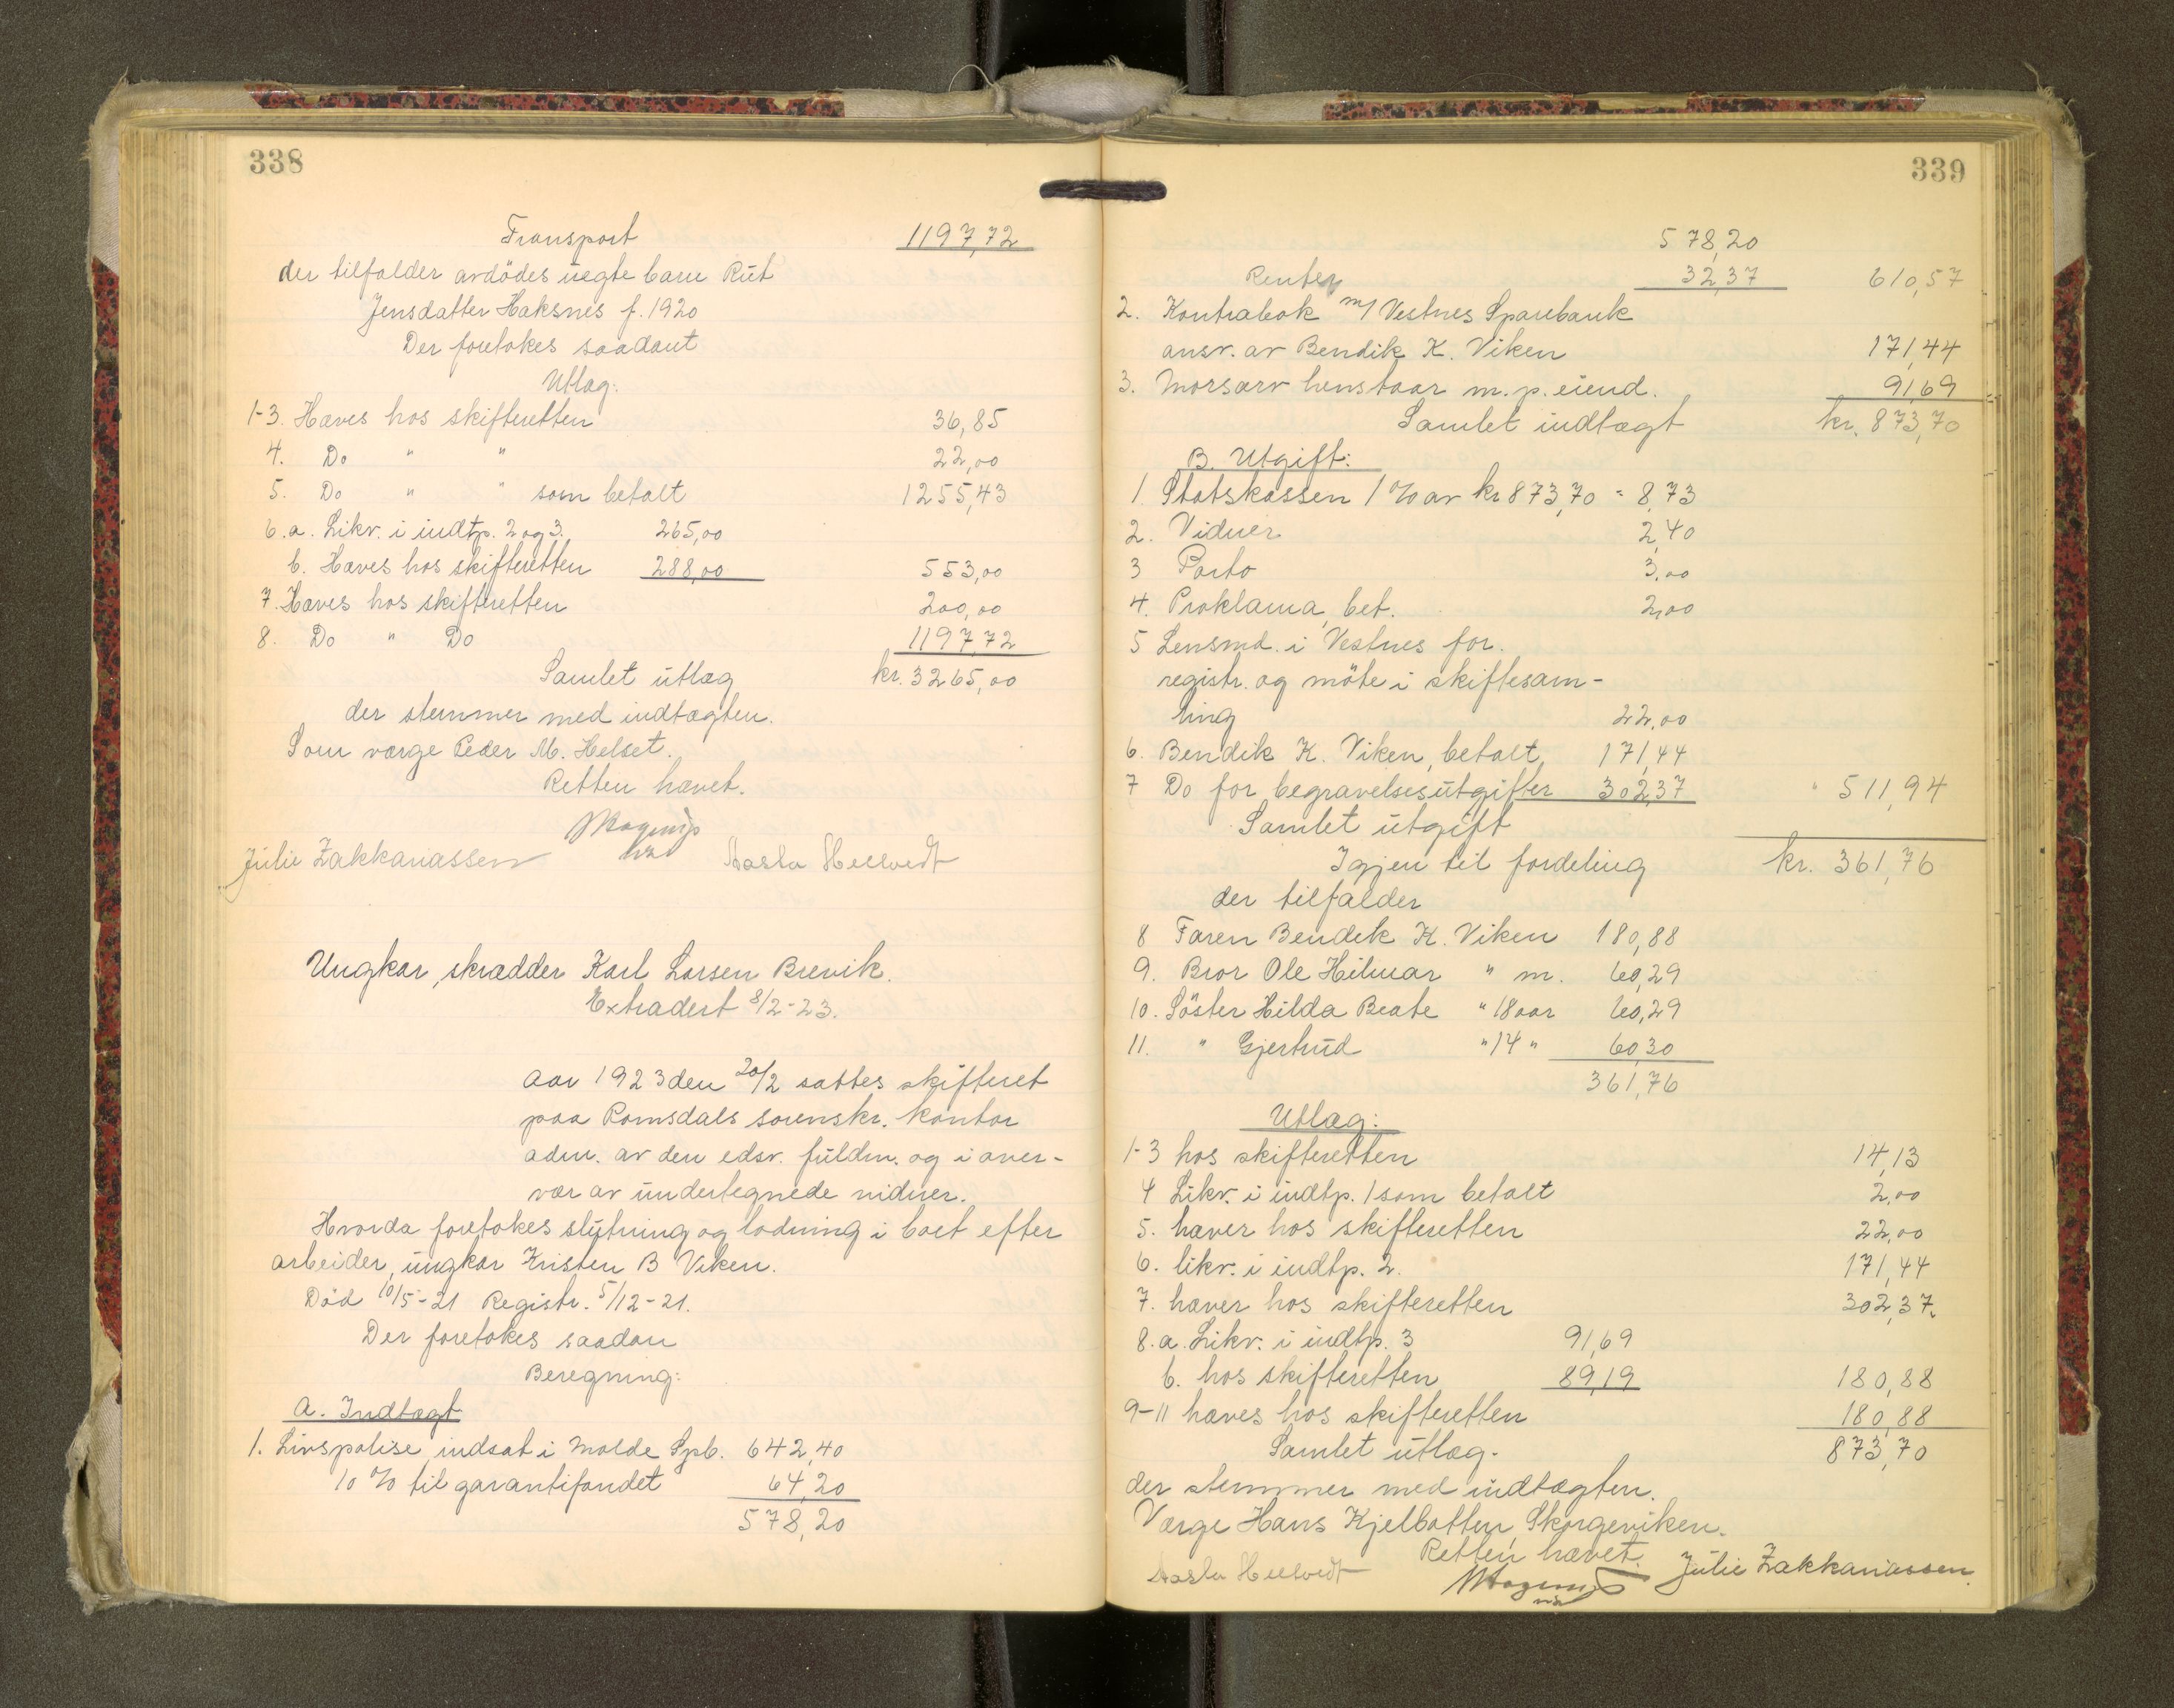 338
Transport 1197,72
der tilfalder avdödes uegte barn Rut
Jensdatter Haksnes f. 1920
Der foretokes saadant
Utlæg:
1-3. Hæves hos skifteretten 36,85
4. Do " " 22,00
5. Do " " som betalt 1255,43
6.a. Likv. i indtp. 2 og 3. 265,00
b. Hæves hos skifteretten 288,00 553,00
7. Hæves hos skifteretten 200,00
8. Do " Do 1197,72
Samlet utlæg kr. 3265,00
der stemmer med indtægten.
Som værge Peder M. Helset.
Retten hævet.
Julie Zakkariassen
Ungkar, skrædder Karl Larsen Brevik.
Extradert 8/2-23.
Aar 1923 den 20/2 sattes skifteret
paa Romsdals sorenskr. kontor
adm. av den edsv. fuldm. og i over-
vær av undertegnede vidner.
Hvorda foretokes slutning og lodning i boet efter
arbeider, ungkar Kristen B Viken.
Död 10/5-21 Registr. 5/12-21.
Der foretokes saadan
Beregning:
A. Indtægt
1. Livspolise indsat i Molde Spb. 642,40
10 % til garantifondet 64,20
578,20
339
578,20
Renter 32,37 610,57
2. Kontrabok m/ Vestnes Sparebank
ansv. av Bendik K. Viken 171,44
3. Morsarv henstaar m. p. eiend. 91,69
Samlet indtægt kr. 873,70
B. Utgift:
1. Statskassen 1 % av kr 873,70 = 8,73
2. Vidner 2,40
3 Porto 3,00
4. Proklama, bet. 2,00
5 Lensmd. i Vestnes for.
registr. og möte i skiftesam-
ling 22,00
6. Bendik K. Viken, betalt 171,44
7 Do for begravelsesutgifter 302,37 " 511,94
Samlet utgift
Igjen til fordeling kr. 361,76
der tilfalder
8 Faren Bendik K. Viken 180,88
9. Bror Ole Hilmar " m. 60,29
10. Söster Hilda Beate " 18 aar 60,29
11. " Gjertrud " 14 " 60,30
361,76
Utlæg:
1-3 hos skifteretten 14,13
4 Likv. i indtp. 1 som betalt 2,00
5. hæver hos skifteretten 22,00
6. likv. i indtp. 2. 171,44
7. hæver hos skifteretten 302,37
8.a. Likv. i indtp. 3 91,69
b. hos skifteretten 89,19 180,88
9-11 hæves hos skifteretten 180,88
Samlet utlæg. 873,70
der stemmer med indtægten.
Værge Hans Kjelbotten, Skorgeviken.
Retten hævet.
Julie Zakkariassen